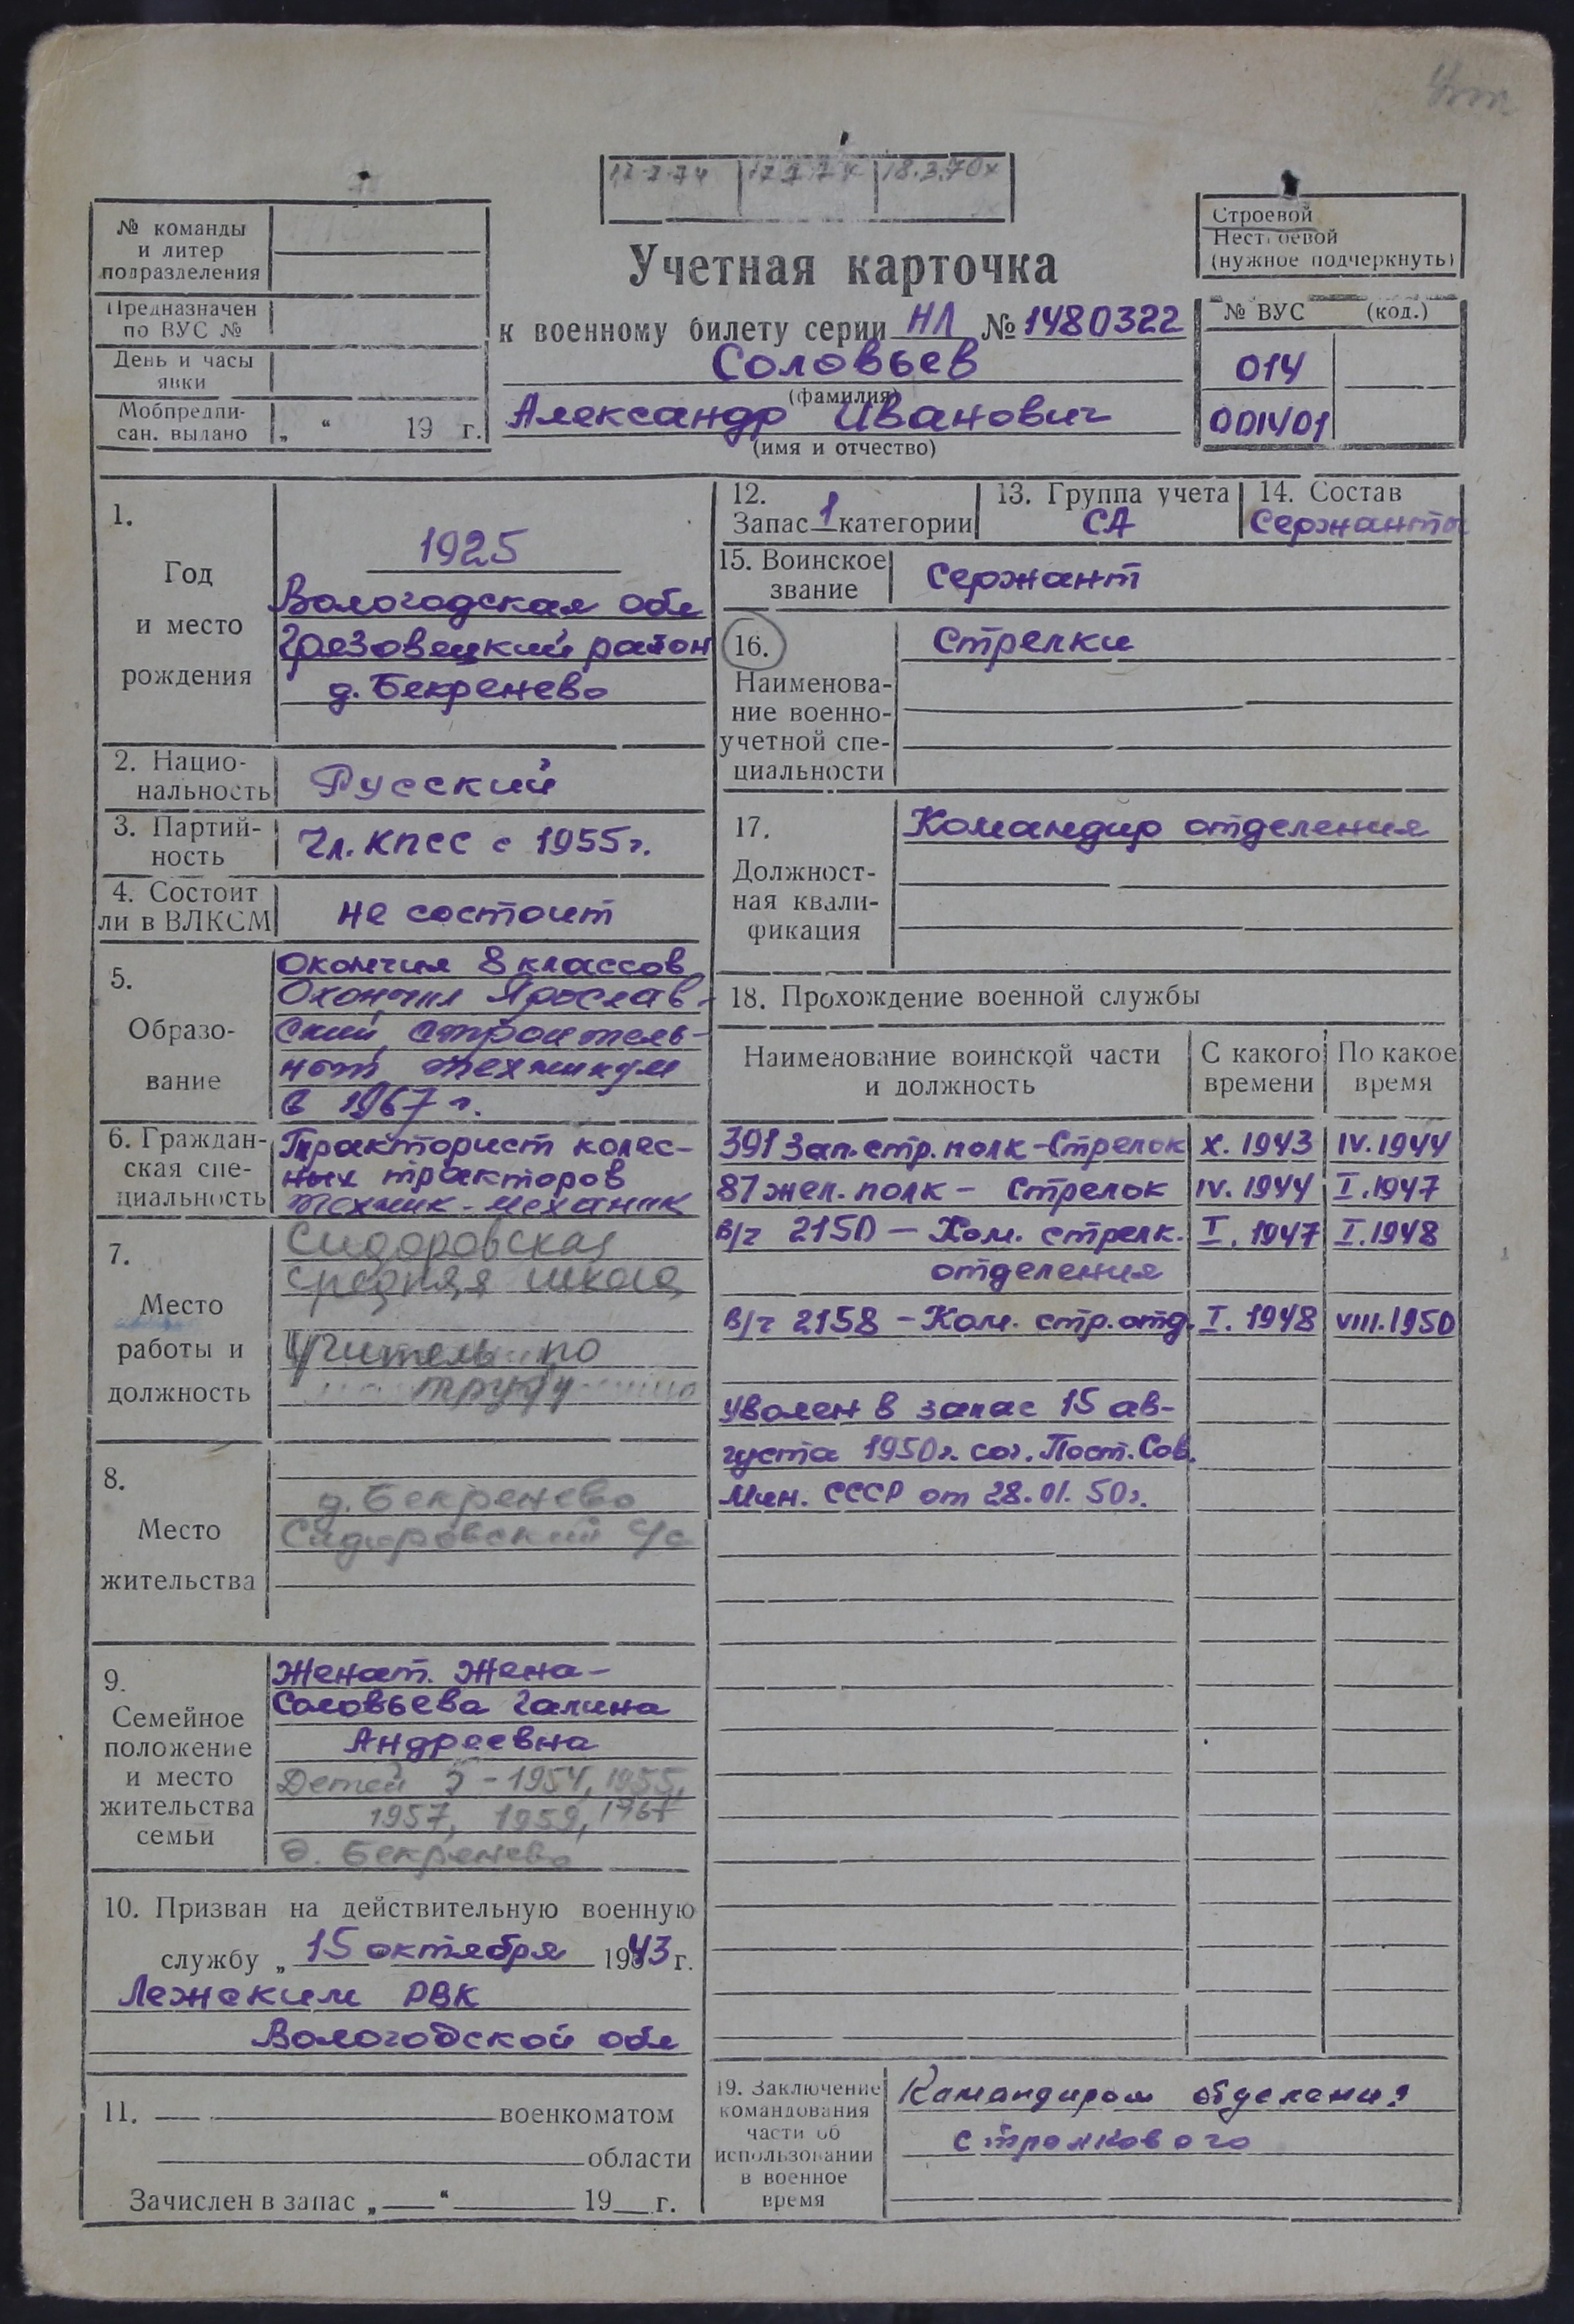 12.2.74 18.3.70
№ команды
и литер
подразделения
Предназначен
по ВУС №
День и часы
явки
Мобпредпи-
сан. выдано „ “ 19 г.
Учетная карточка
к военному билету серии НЛ № 1480322
Соловьев
(фамилия)
Александр Иванович
(имя и отчество)
Строевой
Нестроевой
(нужное подчеркнуть)
№ ВУС (код.)
014
001401
1.
Год
и место
рождения
1925
Вологодская обл
Грязовецкий район
д. Бекренево
2. Нацио-
нальность
Русский
3. Партий-
ность
Чл. КПСС с 1955г.
4. Состоит
ли в ВЛКСМ
не состоит
5.
Образо-
вание
Окончил 8 классов
Окончил Ярослав-
ский строитель-
ный техникум
в 1967 г.
6. Граждан-
ская спе-
циальность
Тракторист колес-
ных тракторов
Техник-механик
7.
Место
работы и
должность
Сидоровская
средняя школа
Учитель по
труду
8.
Место
жительства
д. Бекренево
Сидоровский с/с
9.
Семейное
положение
и место
жительства
семьи
Женат. Жена-
Соловьева Галина
Андреевна
Детей 5 - 1954, 1955,
1957, 1959, 1967
д. Бекренево
10. Призван на действительную военную
службу „ 15 октября 1943 г.
Лежским РВК
Вологодской обл
11. военкоматом
области
Зачислен в запас „ “ 19 г.
12.
Запас 1 категории
13. Группа учета
СА
14. Состав
Сержанты
15. Воинское
звание
Сержант
16.
Наименова-
ние военно-
учетной спе-
циальности
Стрелки
17.
Должност-
ная квали-
фикация
Командир отделения
18. Прохождение военной службы
Наименование воинской части
и должность
С какого
времени
По какое
время
391 Зап. стр. полк - Стрелок X. 1943 IV. 1944
87 жел. полк - Стрелок IV. 1944 I. 1947
в/ч 2150 - Ком. стрелк. I. 1947 I. 1948
отделения
в/ч 2158 - Ком. стр. отд. I. 1948 VIII. 1950
Уволен в запас 15 ав-
густа 1950г. сог. Пост. Сов.
Мин. СССР от 28.01.50г.
19. Заключение
командования
части об
использовании
в военное
время
Командиром отделения
стрелкового